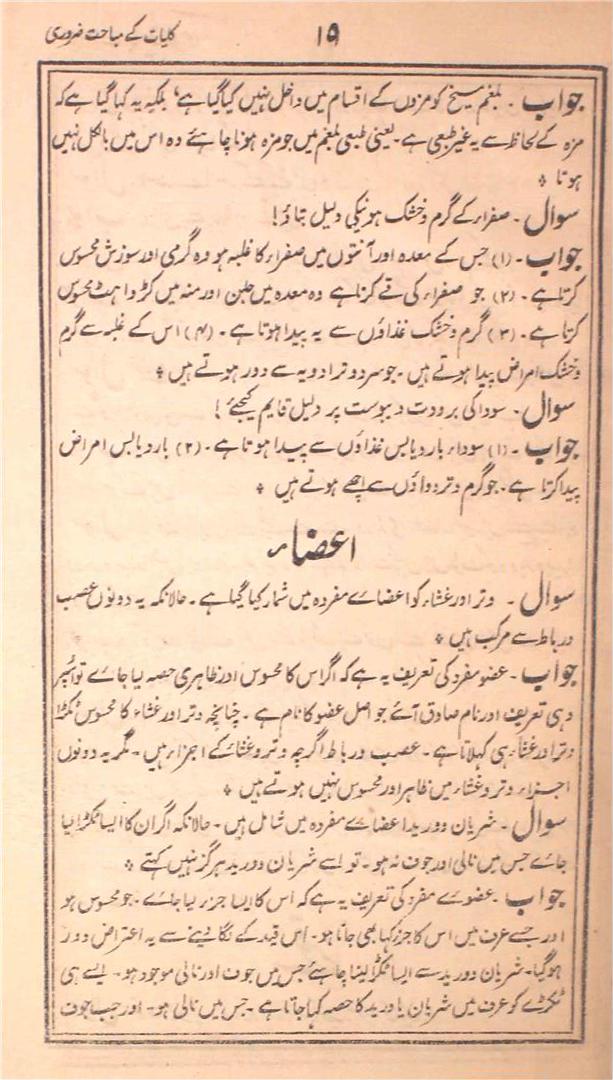 ۱۵
کلیات کے مباحث ضروری
جواب۔ بلغم مسیخ کو مزوں کے اقسام میں داخل نہیں کیا گیا ہے، بلکہ یہ کہا گیا ہے کہ
مزہ کے لحاظ سے یہ غیر طبعی ہے۔ یعنی طبعی بلغم میں جو مزہ ہونا چاہئے وہ اس میں بالکل نہیں
ہوتا ٭
سوال۔ صفراء کے گرم و خشک ہونیکی دلیل بتاؤ!
جواب۔ (۱) جس کے معدہ اور آنتوں میں صفراء کا غلبہ ہو وہ گرمی اور سوزش محسوس
کرتا ہے۔ (۲) جو صفراء کی قے کرتا ہے وہ معدہ میں جلن اور منہ میں کڑواہٹ محسوس
کرتا ہے۔ (۳) گرم و خشک غذاؤں سے یہ پیدا ہوتا ہے۔ (۴) اس کے غلبہ سے گرم
و خشک امراض پیدا ہوتے ہیں۔ جو سرد و تر ادویہ سے دور ہوتے ہیں ٭
سوال۔ سودا کی برودت و یبوست پر دلیل قایم کیجئے!
جواب۔ (۱) سوداء بارد یابس غذاؤں سے پیدا ہوتا ہے۔ (۲) بارد یابس امراض
پیدا کرتا ہے۔ جو گرم و تر دواؤں سے اچھے ہوتے ہیں ٭
اعضاء
سوال۔ وتر اور غشاء کو اعضاے مفردہ میں شمار کیا گیا ہے۔ حالانکہ یہ دونوں عصب
و رباط سے مرکب ہیں ٭
جواب۔ عضو مفرد کی تعریف یہ ہے کہ اگر اس کا محسوس اور ظاہری حصہ لیا جاے تو اسپر
وہی تعریف اور نام صادق آئے جو اصل عضو کا نام ہے۔ چنانچہ وتر اور غشاء کا محسوس ٹکڑا
وتر اور غشاء ہی کہلاتا ہے۔ عصب و رباط اگرچہ وتر و غشاء کے اجزاء ہیں۔ مگر یہ دونوں
اجزاء وتر و غشاء میں ظاہر اور محسوس نہیں ہوتے ہیں ٭
سوال۔ شریان و ورید اعضاے مفردہ میں شامل ہیں۔ حالانکہ اگر ان کا ایسا ٹکڑا لیا
جاے جس میں نالی اور جوف نہ ہو۔ تو اسے شریان و ورید ہرگز نہیں کہتے ٭
جواب۔ عضوے مفرد کی تعریف یہ ہے کہ اس کا ایسا جزء لیا جاے۔ جو محسوس ہو
اور جسے عرف میں اس کا جزء کہا بھی جاتا ہو۔ اس قید کے لگا دینے سے یہ اعتراض دور
ہوگیا۔ شریان و ورید سے ایسا ٹکڑا لینا چاہئے جس میں جوف اور نالی موجود ہو۔ ایسے ہی
ٹکڑے کو عرف میں شریان یا ورید کا حصہ کہا جاتا ہے۔ جس میں نالی ہو۔ اور جب جوف